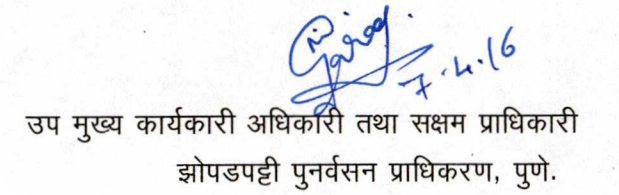 7.4.16
उप मुख्य कार्यकारी अधिकारी तथा सक्षम प्राधिकारी
झोपडपट्टी पुनर्वसन प्राधिकरण, पुणे.